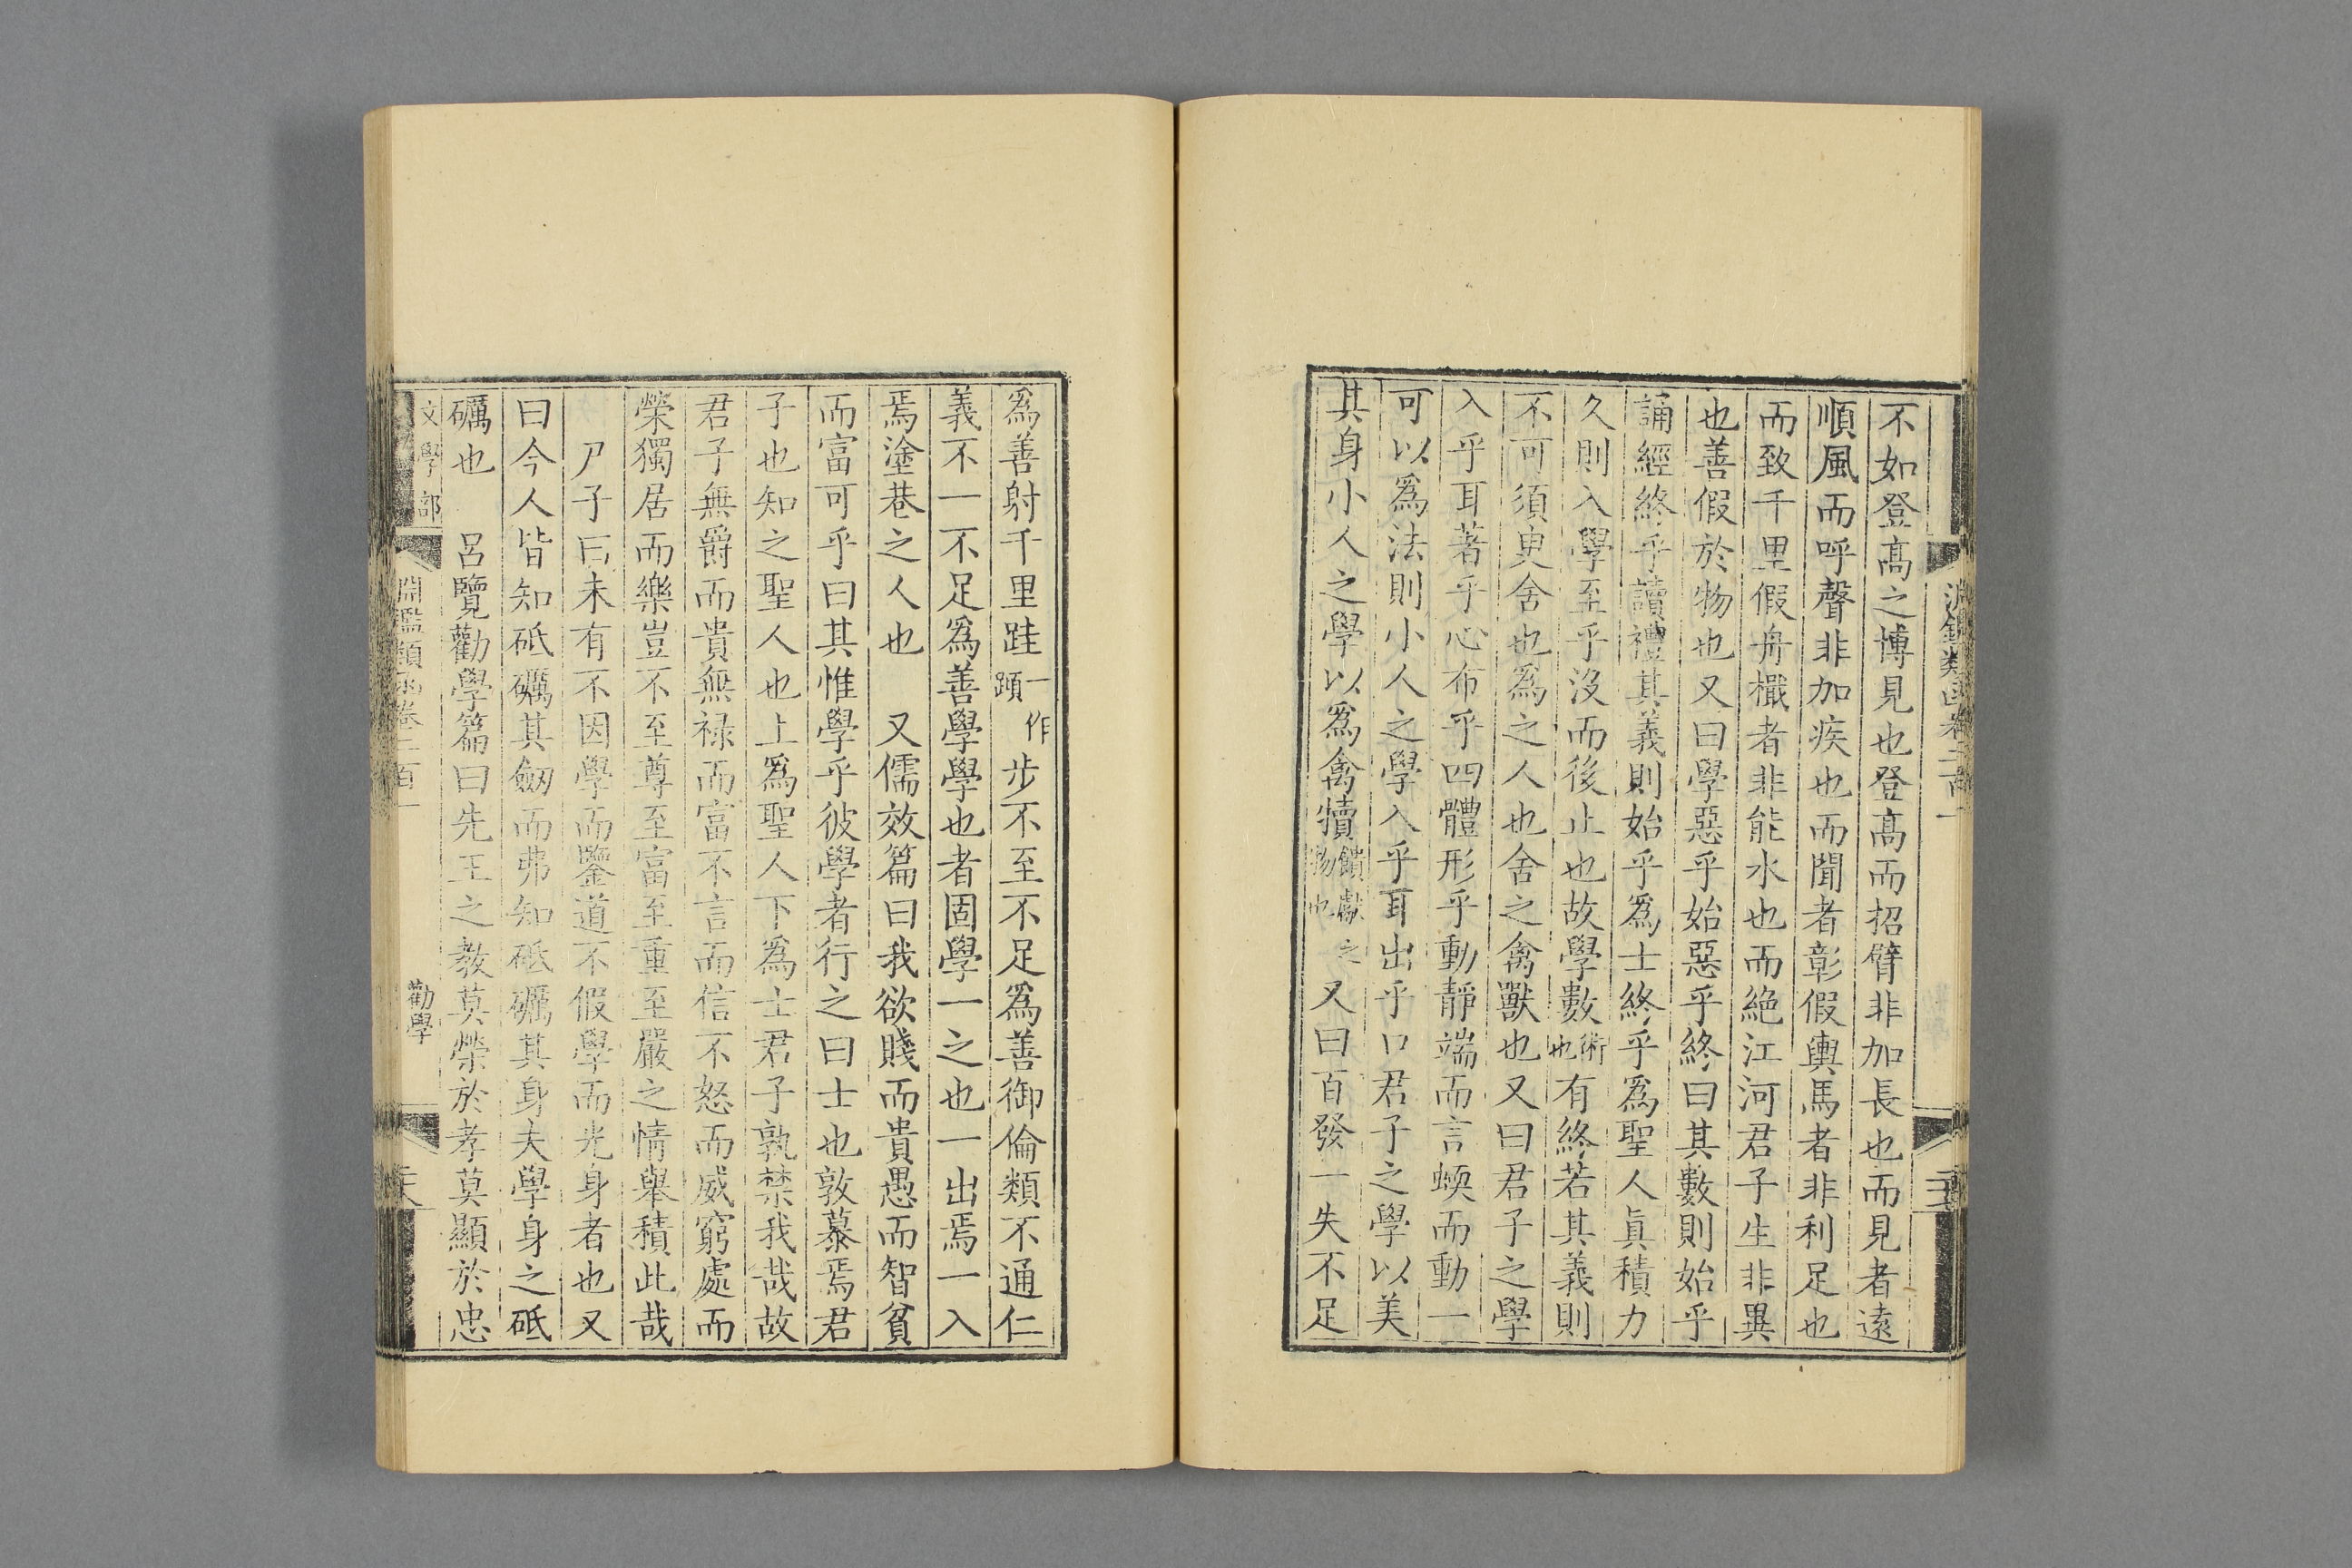 不如登髙之博見也登髙而招臂非加長也而見者遠
順風而呼聲非加疾也而聞者彰假輿馬者非利足也
而致千里假舟檝者非能水也而絶江河君子生非異
也善假於物也又曰學惡乎始惡乎終曰其數則始乎
誦經終乎讀禮其義則始乎爲士終乎爲聖人眞積力
久則入學至乎沒而後止也故學數術也有終若其義則
不可須臾舍也爲之人也舍之禽獸也又曰君子之學
入乎耳著乎心布乎四體形乎動靜端而言蝡而動一
可以爲法則小人之學入乎耳出乎口君子之學以美
其身小人之學以爲禽犢饋獻之物也又曰百發一失不足
爲善射千里跬一作蹞步不至不足爲善御倫類不通仁
義不一不足爲善學學也者固學一之也一出焉一入
焉塗巷之人也　又儒效篇曰我欲賤而貴愚而智貧
而富可乎曰其惟學乎彼學者行之曰士也敦慕焉君
子也知之聖人也上爲聖人下爲士君子孰禁我哉故
君子無爵而貴無祿而富不言而信不怒而威窮處而
榮獨居而樂豈不至尊至富至重至嚴之情舉積此哉
尸子曰未有不因學而鑒道不假學而光身者也又
曰今人皆知砥礪其劒而弗知砥礪其身夫學身之砥
礪也　呂覽勸學篇曰先王之教莫榮於孝莫顯於忠
文學部
淵鑑類函卷二百一
勸學